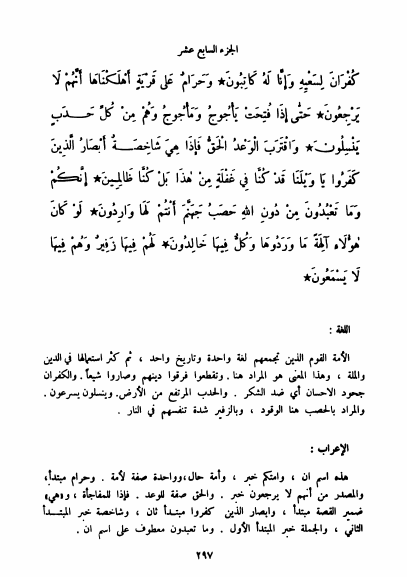 الجزء السابع عشر
كُفْرَانَ لِسَعْيِهِ وَإِنَّا لَهُ كَاتِبُونَ★ وَحَرَامٌ عَلَى قَرْيَةٍ أَهْلَكْنَاهَا أَنَّهُمْ لَا
يَرْجِعُونَ★ حَتَّى إِذَا فُتِحَتْ يَأْجُوجُ وَمَأْجُوجُ وَهُمْ مِنْ كُلِّ حَدَبٍ
يَنْسِلُونَ★ وَاقْتَرَبَ الْوَعْدُ الْحَقُّ فَإِذَا هِيَ شَاخِصَةٌ أَبْصَارُ الَّذِينَ
كَفَرُوا يَا وَيْلَنَا قَدْ كُنَّا فِي غَفْلَةٍ مِنْ هٰذَا بَلْ كُنَّا ظَالِمِينَ★ إِنَّكُمْ
وَمَا تَعْبُدُونَ مِنْ دُونِ اللهِ حَصَبُ جَهَنَّمَ أَنْتُمْ لَهَا وَارِدُونَ★ لَوْ كَانَ
هٰؤُلَاءِ آلِهَةً مَا وَرَدُوهَا وَكُلٌّ فِيهَا خَالِدُونَ★ لَهُمْ فِيهَا زَفِيرٌ وَهُمْ فِيهَا
لَا يَسْمَعُونَ★
اللغة :
الأمة القوم الذين تجمعهم لغة واحدة وتاريخ واحد ، ثم كثر استعمالها في الدين
والملة ، وهذا المعنى هو المراد هنا . وتقطعوا فرقوا دينهم وصاروا شيعاً . والكفران
جحود الاحسان أي ضد الشكر . والحدب المرتفع من الأرض . وينسلون يسرعون .
والمراد بالحصب هنا الوقود ، وبالزفير شدة تنفسهم في النار .
الإعراب :
هذه اسم ان ، وامتكم خبر ، وأمة حال ، وواحدة صفة لأمة . وحرام مبتدأ ،
والمصدر من أنهم لا يرجعون خبر . والحق صفة للوعد . فإذا للمفاجأة ، و«هي»
ضمير القصة مبتدأ ، وابصار الذين كفروا مبتدأ ثان ، وشاخصة خبر المبتدأ
الثاني ، والجملة خبر المبتدأ الأول . وما تعبدون معطوف على اسم ان .
٢٩٧